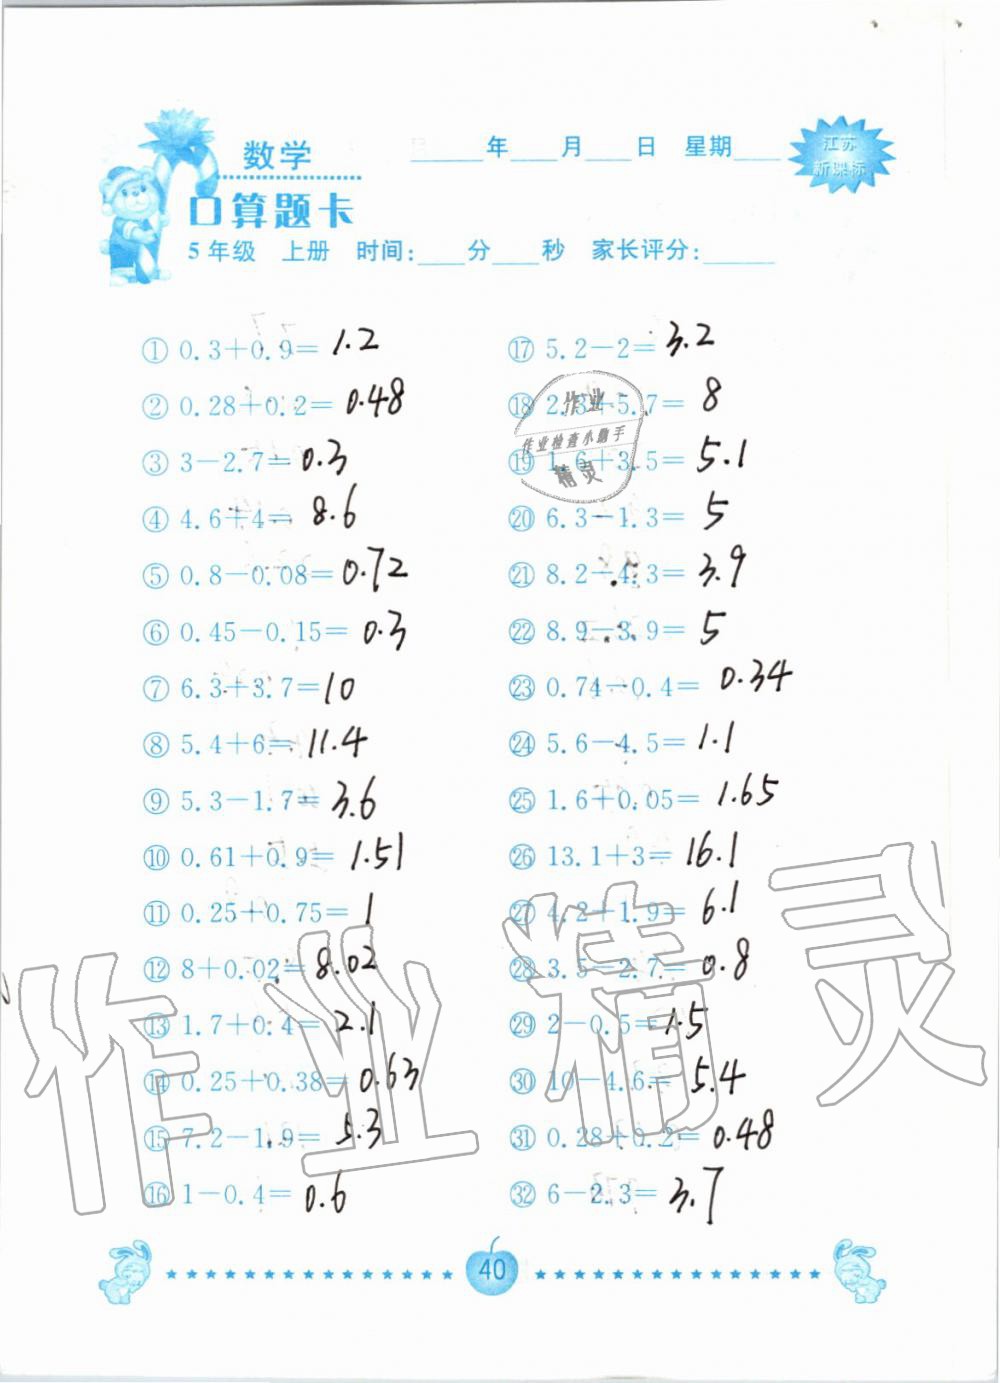 数学
____年____月____日 星期____
江苏
新课标
口算题卡
5年级 上册 时间:____分____秒 家长评分:______
① 0.3+0.9= 1.2
② 0.28+0.2= 0.48
③ 3-2.7= 0.3
④ 4.6+4= 8.6
⑤ 0.8-0.08= 0.72
⑥ 0.45-0.15= 0.3
⑦ 6.3+3.7= 10
⑧ 5.4+6= 11.4
⑨ 5.3-1.7= 3.6
⑩ 0.61+0.9= 1.51
⑪ 0.25+0.75= 1
⑫ 8+0.02= 8.02
⑬ 1.7+0.4= 2.1
⑭ 0.25+0.38= 0.63
⑮ 7.2-1.9= 5.3
⑯ 1-0.4= 0.6
⑰ 5.2-2= 3.2
⑱ 2.3+5.7= 8
⑲ 1.6+3.5= 5.1
⑳ 6.3-1.3= 5
㉑ 8.2-4.3= 3.9
㉒ 8.9-3.9= 5
㉓ 0.74-0.4= 0.34
㉔ 5.6-4.5= 1.1
㉕ 1.6+0.05= 1.65
㉖ 13.1+3= 16.1
㉗ 4.2+1.9= 6.1
㉘ 3.5-2.7= 0.8
㉙ 2-0.5= 1.5
㉚ 10-4.6= 5.4
㉛ 0.28+0.2= 0.48
㉜ 6-2.3= 3.7
作业
作业检查小助手
精灵
作业精灵
40